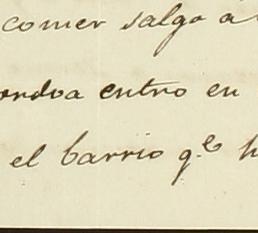 comer salgo á
ordva entro en
el barrio q.e h